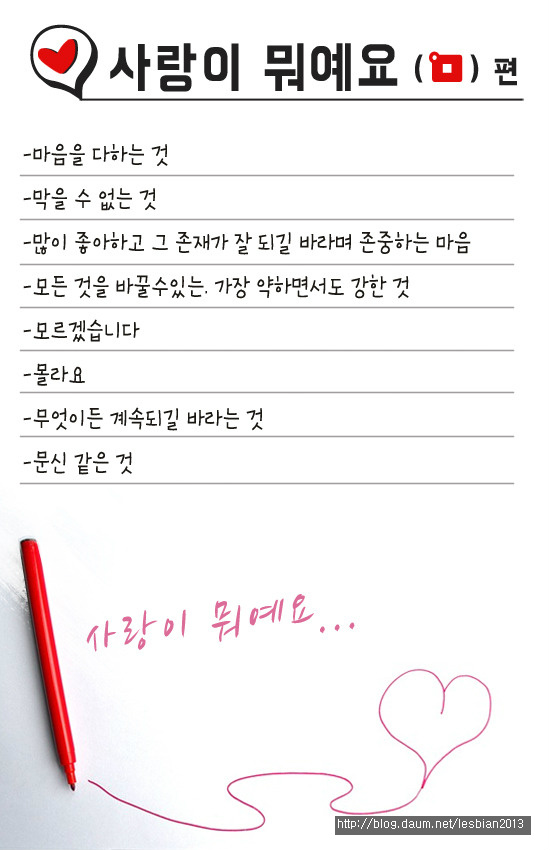 사랑이 뭐예요 (ㅁ) 편
-마음을 다하는 것
-막을 수 없는 것
-많이 좋아하고 그 존재가 잘 되길 바라며 존중하는 마음
-모든 것을 바꿀수있는. 가장 약하면서도 강한 것
-모르겠습니다
-몰라요
-무엇이든 계속되길 바라는 것
-문신 같은 것
사랑이 뭐예요...
http://blog.daum.net/lesbian2013